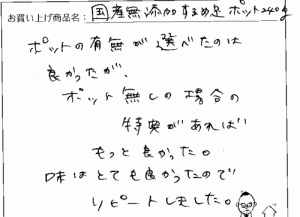 お買い上げ商品名：国産無添加するめ足 ポット240g
ポットの有無が選べたのは
良かったが、
ポット無しの場合の
特典があれば
もっと良かった。
味はとても良かったので
リピートしました。